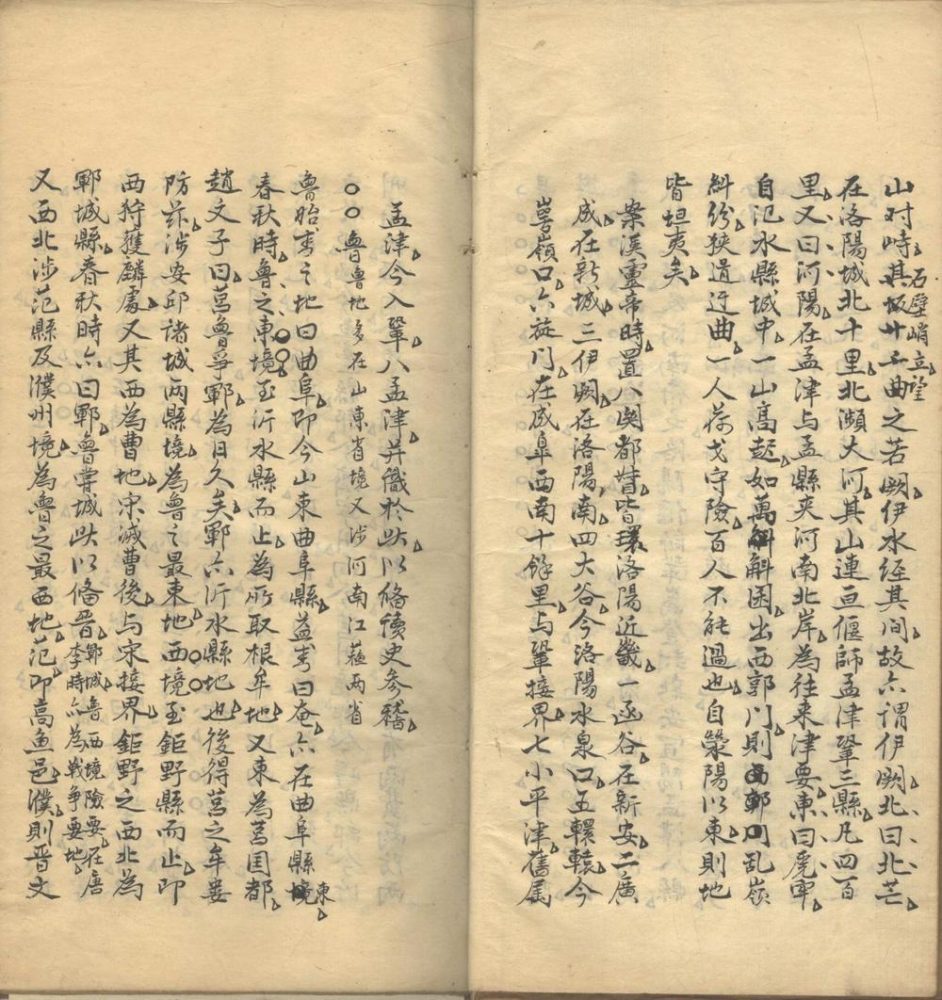 山对峙石壁峭立望其坂廿五曲之若阙伊水经其间故亦谓伊阙北曰北芒
在洛陽城北十里北瀕大河其山連亘偃師孟津鞏三縣凡四百
里又曰河陽在孟津与孟縣夾河南北岸為往来津要東曰虎牢
自汜水縣城中一山高起如萬斛囷出西郭门則乱嶺
糾纷狭道迂曲一人荷戈守險百人不能過也自滎陽以東則地
皆坦夷矣
案漢靈帝時置八関都尉皆環洛陽近畿一函谷在新安二廣
成在新城三伊阙在洛陽南四大谷今洛陽水泉口五轘轅今
崿嶺口六旋门在成皋西南十餘里与鞏接界七小平津舊属
孟津今入鞏八孟津并識於此以俻讀史参稽
〇〇魯魯地多在山東省境又涉河南江蘇两省
魯始封之地曰曲阜即今山東曲阜縣益封曰奄亦在曲阜縣境東
春秋時魯之東境至沂水縣而止為所取根牟地又東為莒国都
趙文子曰莒魯爭鄆為日久矣鄆亦沂水縣地也後得莒之牟婁
防兹涉安邱诸城两縣境為魯之最東地西境至鉅野縣而止即
西狩獲麟處又其西為曹地宋滅曹後与宋接界鉅野之西北為
鄆城縣春秋時亦曰鄆魯嘗城此以俻晋鄆城魯西境險要在唐季時亦為戰争要地
又西北涉范縣及濮州境為魯之最西地范即高魚邑濮則晋文